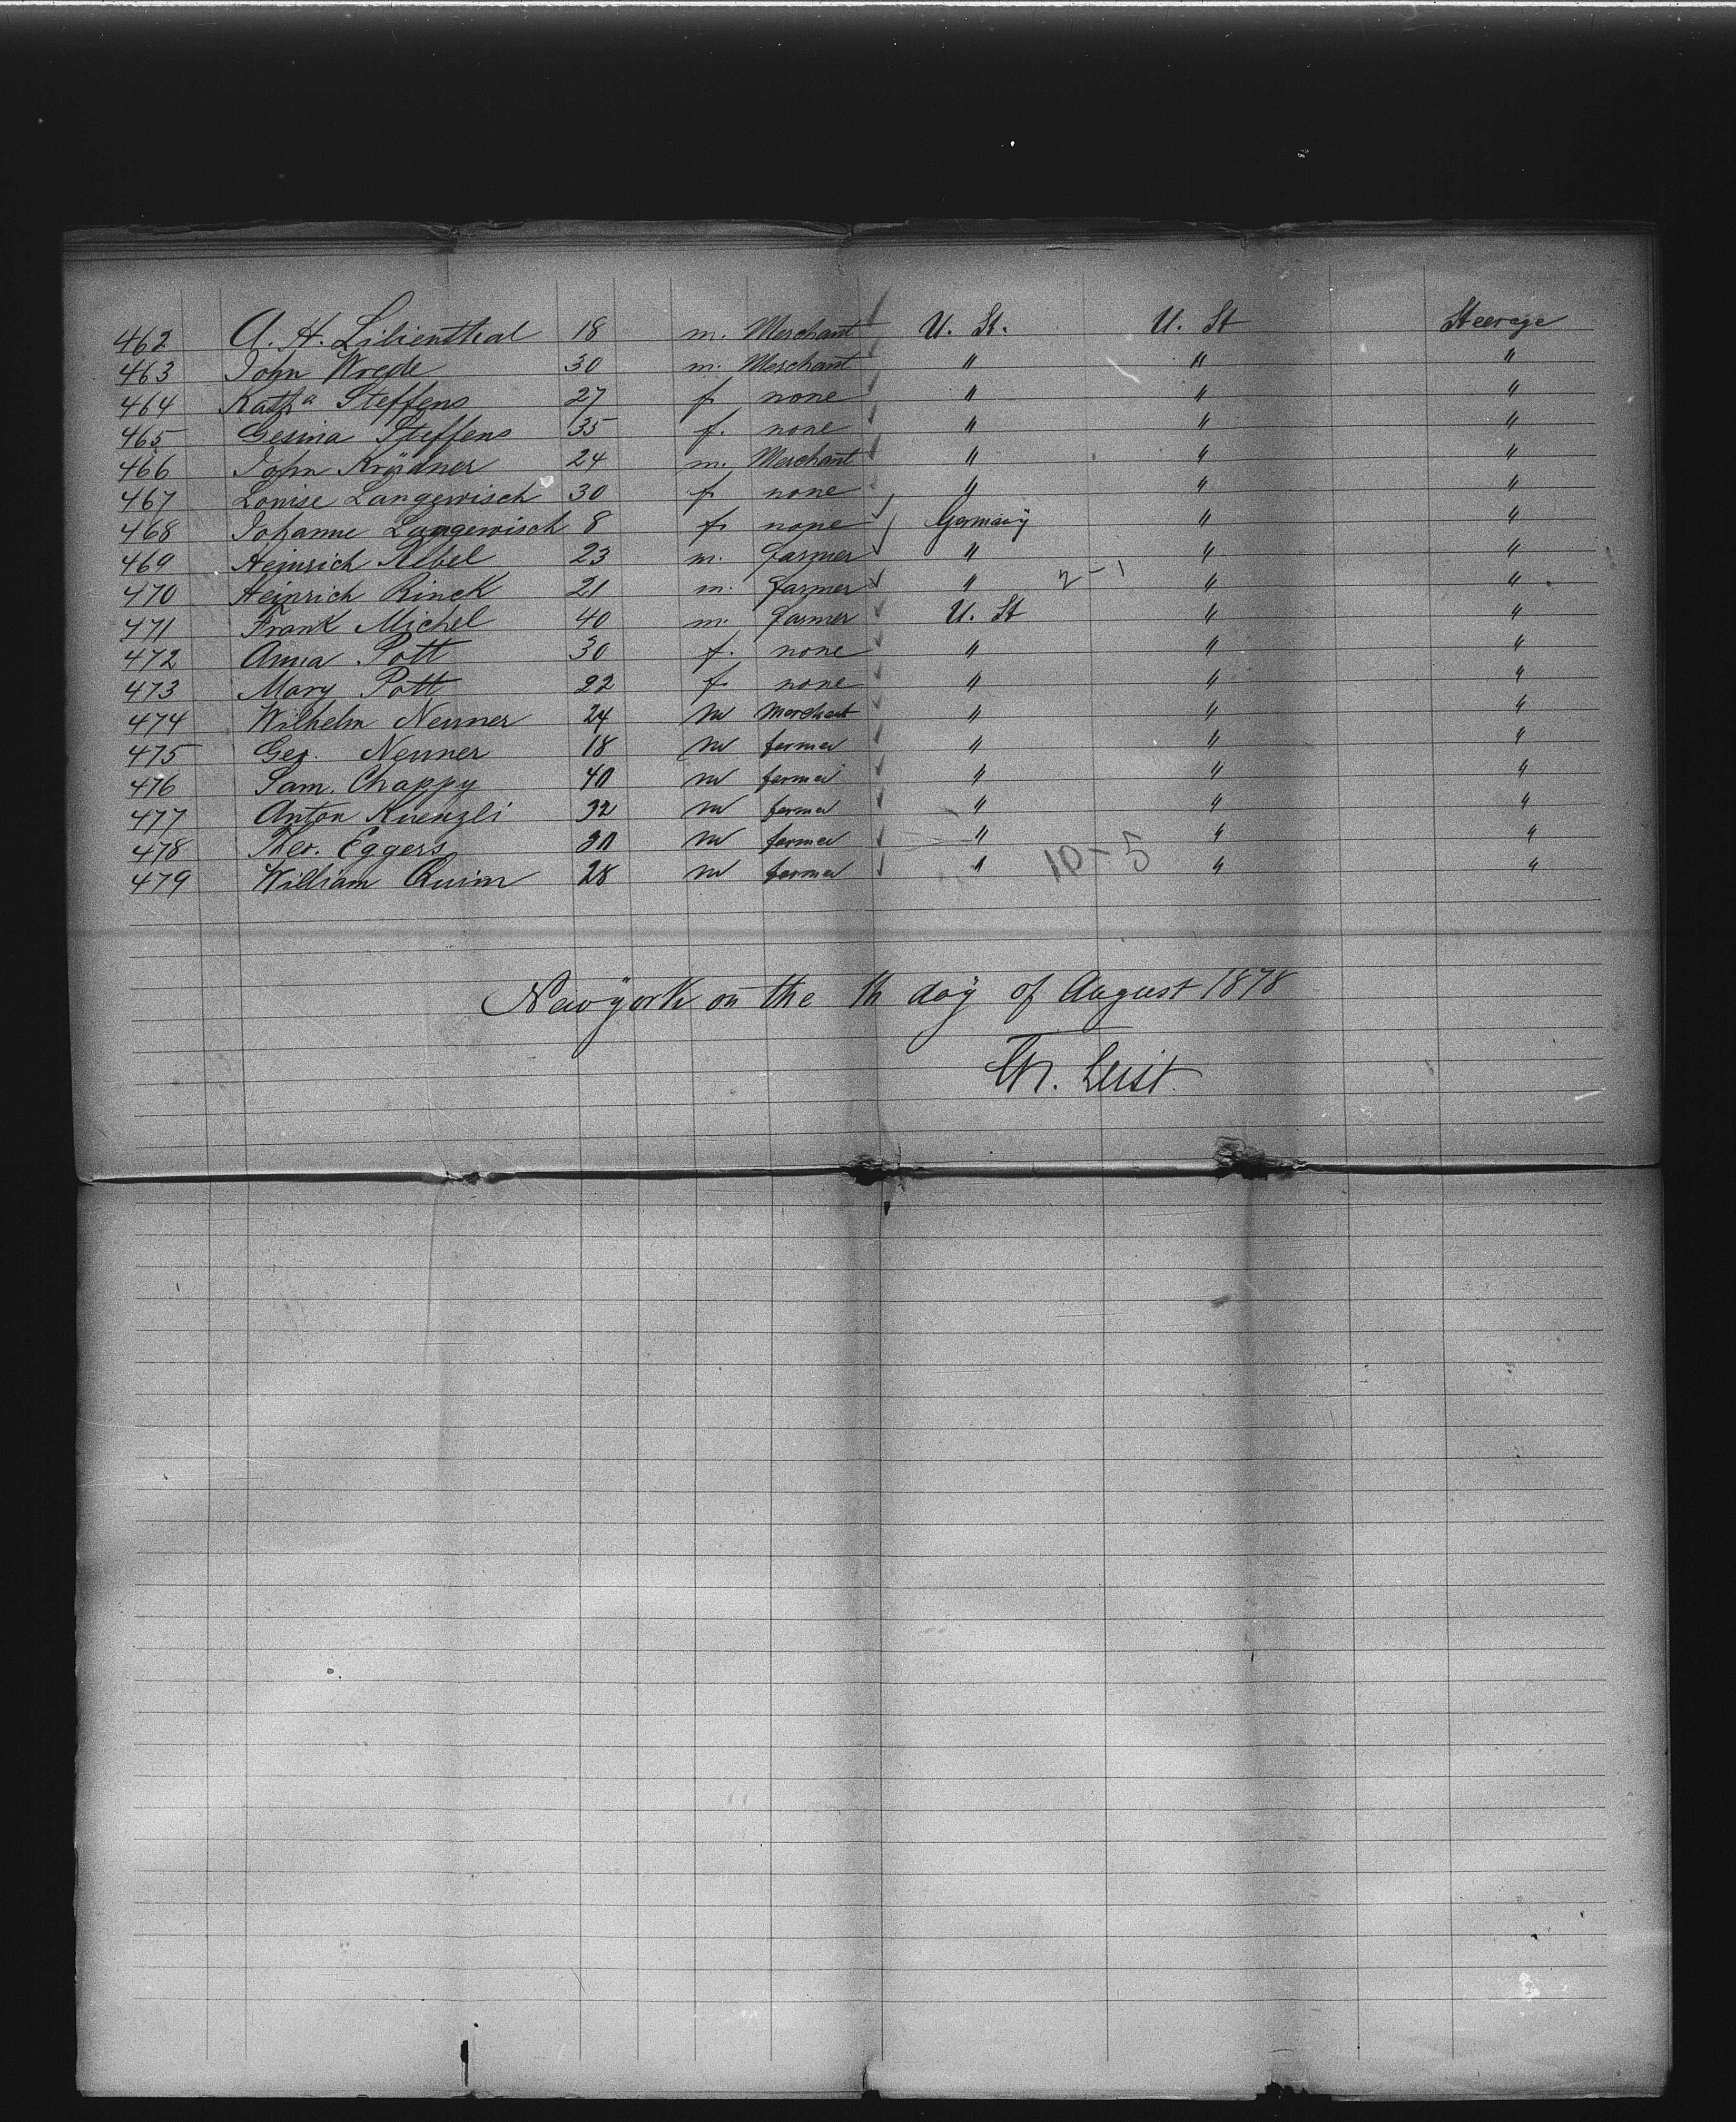 462 A. H. Lilienthal 18 m. Merchant U. St. U. St Steerage
463 John Wrede 30 m. Merchant " " "
464 Kath^a Steffens 27 f. none " " "
465 Gesina Steffens 35 f. none " " "
466 John 24 m. Merchant " " "
467 Louise Langewisch 30 f none " " "
468 Johanne Langewisch 8 f. none Germany " "
469 Heinrich 23 m. farmer " " "
470 Heinrich Rinck 21 m. farmer " 2-1 " "
471 Frank Michel 40 m. farmer U. St " "
472 Anna Pott 30 f. none " " "
473 Mary Pott 22 f. none " " "
474 Wilhelm Neuner 24 m Merchant " " "
475 Geo. Neuner 18 m farmer " " "
476 Sam. Chappy 40 m farmer " " "
477 Anton Kuenzli 32 m farmer " " "
478 Theo. Eggers m farmer " " "
479 William Quinn 28 m farmer " 10-5 " "
Newyork on the th day of August 1878
Leist